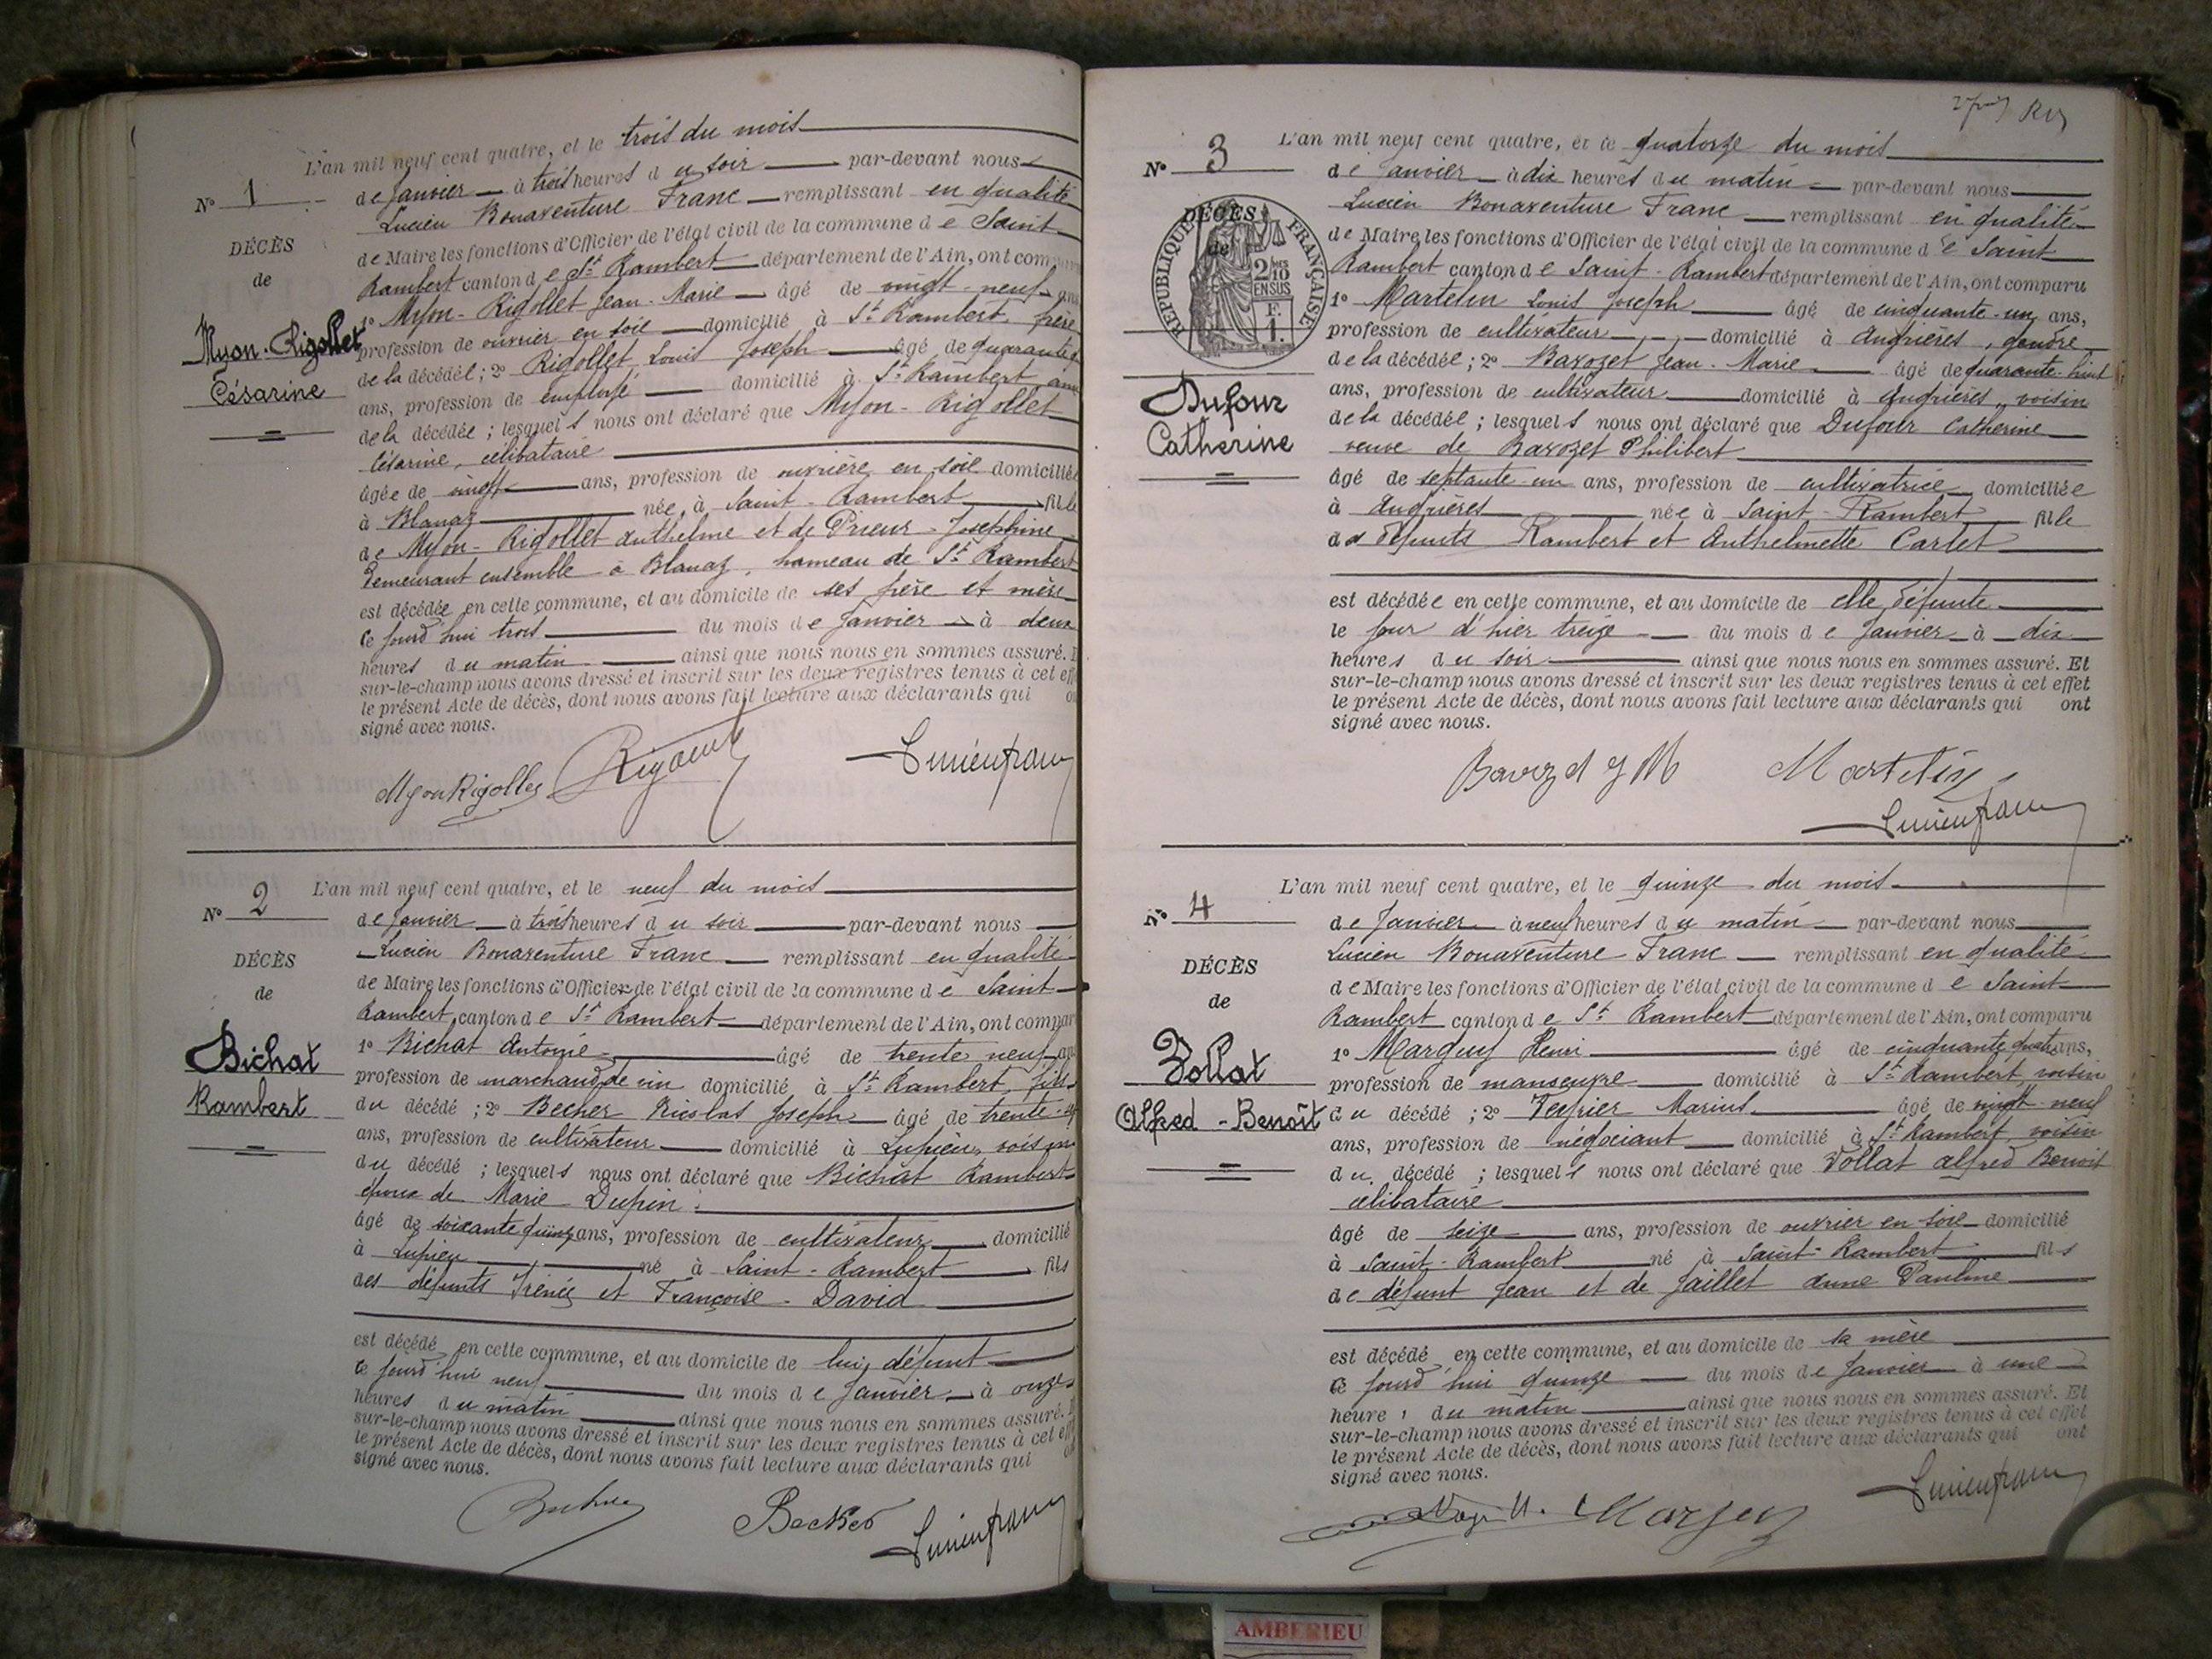 L'an mil neuf cent quatre, et le trois du mois
No 1
de Janvier à trois heures du soir par-devant nous
Lucien Bonaventure Franc remplissant en qualité
DÉCÈS
de Maire les fonctions d'Officier de l'état civil de la commune de Saint
de
Rambert canton de St Rambert département de l'Ain, ont
1o Myon-Rigollet Jean-Marie âgé de vingt-neuf ans
Myon-Rigollet
profession de ouvrier en soie domicilié à St Rambert, frère
Césarine
de la décédée; 2o Rigollet Louis Joseph âgé de quarante
ans, profession de employé domicilié à St Rambert, ami
de la décédée; lesquels nous ont déclaré que Myon-Rigollet
Césarine, célibataire
âgée de vingt ans, profession de ouvrière en soie domiciliée
à Blanaz née à Saint-Rambert fille
de Myon-Rigollet Anthelme et de Prieur-Josephine
demeurant ensemble à Blanaz, hameau de St Rambert
est décédée en cette commune, et au domicile de ses père et mère
ce jourd'hui trois du mois de Janvier à deux
heures du matin ainsi que nous nous en sommes assuré.
sur-le-champ nous avons dressé et inscrit sur les deux registres tenus à cet
le présent Acte de décès, dont nous avons fait lecture aux déclarants qui
signé avec nous.
MyonRigollet Lucienfranc
L'an mil neuf cent quatre, et le neuf du mois
No 2
de Janvier à trois heures du soir par-devant nous
Lucien Bonaventure Franc remplissant en qualité
DÉCÈS
de Maire les fonctions d'Officier de l'état civil de la commune de Saint
de
Rambert canton de St Rambert département de l'Ain, ont
1o Bichat Antoine âgé de trente neuf ans
Bichat
profession de marchand de vin domicilié à St Rambert, fils
Rambert
du décédé; 2o Becher Nicolas Joseph âgé de trente
ans, profession de cultivateur domicilié à Lupieu, voisin
du décédé; lesquels nous ont déclaré que Bichat Rambert
époux de Marie Dupin
âgé de soixante quinze ans, profession de cultivateur domicilié
à Lupieu né à Saint-Rambert fils
des défunts Irénée et Françoise-David
est décédé en cette commune, et au domicile de lui, défunt
ce jourd'hui neuf du mois de Janvier à onze
heures du matin ainsi que nous nous en sommes assuré.
sur-le-champ nous avons dressé et inscrit sur les deux registres tenus à cet
le présent Acte de décès, dont nous avons fait lecture aux déclarants qui
signé avec nous.
Becker Lucienfranc
L'an mil neuf cent quatre, et le quatorze du mois
No 3
de Janvier à dix heures du matin par-devant nous
Lucien Bonaventure Franc remplissant en qualité
DÉCÈS
de
RÉPUBLIQUE FRANÇAISE
2/10 EN SUS
F. 1.
de Maire les fonctions d'Officier de l'état civil de la commune de Saint
Rambert canton de Saint-Rambert département de l'Ain, ont comparu
1o Martelin Louis Joseph âgé de cinquante-un ans,
profession de cultivateur domicilié à Angrières, gendre
de la décédée; 2o Bavozet Jean-Marie âgé de quarante-huit
Dufour
ans, profession de cultivateur domicilié à Angrières, voisin
Catherine
de la décédée; lesquels nous ont déclaré que Dufour Catherine
veuve de Bavozet Philibert
âgé de septante-un ans, profession de cultivatrice domiciliée
à Angrières née à Saint-Rambert fille
des défunts Rambert et Anthelmette Carlet
est décédée en cette commune, et au domicile de elle, défunte
le jour d'hier treize du mois de Janvier à dix
heures du soir ainsi que nous nous en sommes assuré. Et
sur-le-champ nous avons dressé et inscrit sur les deux registres tenus à cet effet
le présent Acte de décès, dont nous avons fait lecture aux déclarants qui ont
signé avec nous.
Martelin
Lucienfranc
L'an mil neuf cent quatre, et le quinze du mois
No 4
de Janvier à neuf heures du matin par-devant nous
Lucien Bonaventure Franc remplissant en qualité
DÉCÈS
de Maire les fonctions d'Officier de l'état civil de la commune de Saint
de
Rambert canton de St Rambert département de l'Ain, ont comparu
1o Marguy Henri âgé de cinquante quatre ans,
Vollat
profession de manœuvre domicilié à St Rambert, voisin
Alfred-Benoît
du décédé; 2o Marius âgé de vingt-neuf
ans, profession de négociant domicilié à St Rambert, voisin
du décédé; lesquels nous ont déclaré que Vollat Alfred Benoit
célibataire
âgé de seize ans, profession de ouvrier en soie domicilié
à Saint-Rambert né à Saint-Rambert fils
de défunt Jean et de Jaillet Anne Pauline
est décédé en cette commune, et au domicile de sa mère
ce jourd'hui quinze du mois de Janvier à une
heure, du matin ainsi que nous nous en sommes assuré. Et
sur-le-champ nous avons dressé et inscrit sur les deux registres tenus à cet effet
le présent Acte de décès, dont nous avons fait lecture aux déclarants qui ont
signé avec nous.
Lucienfranc
AMBERIEU